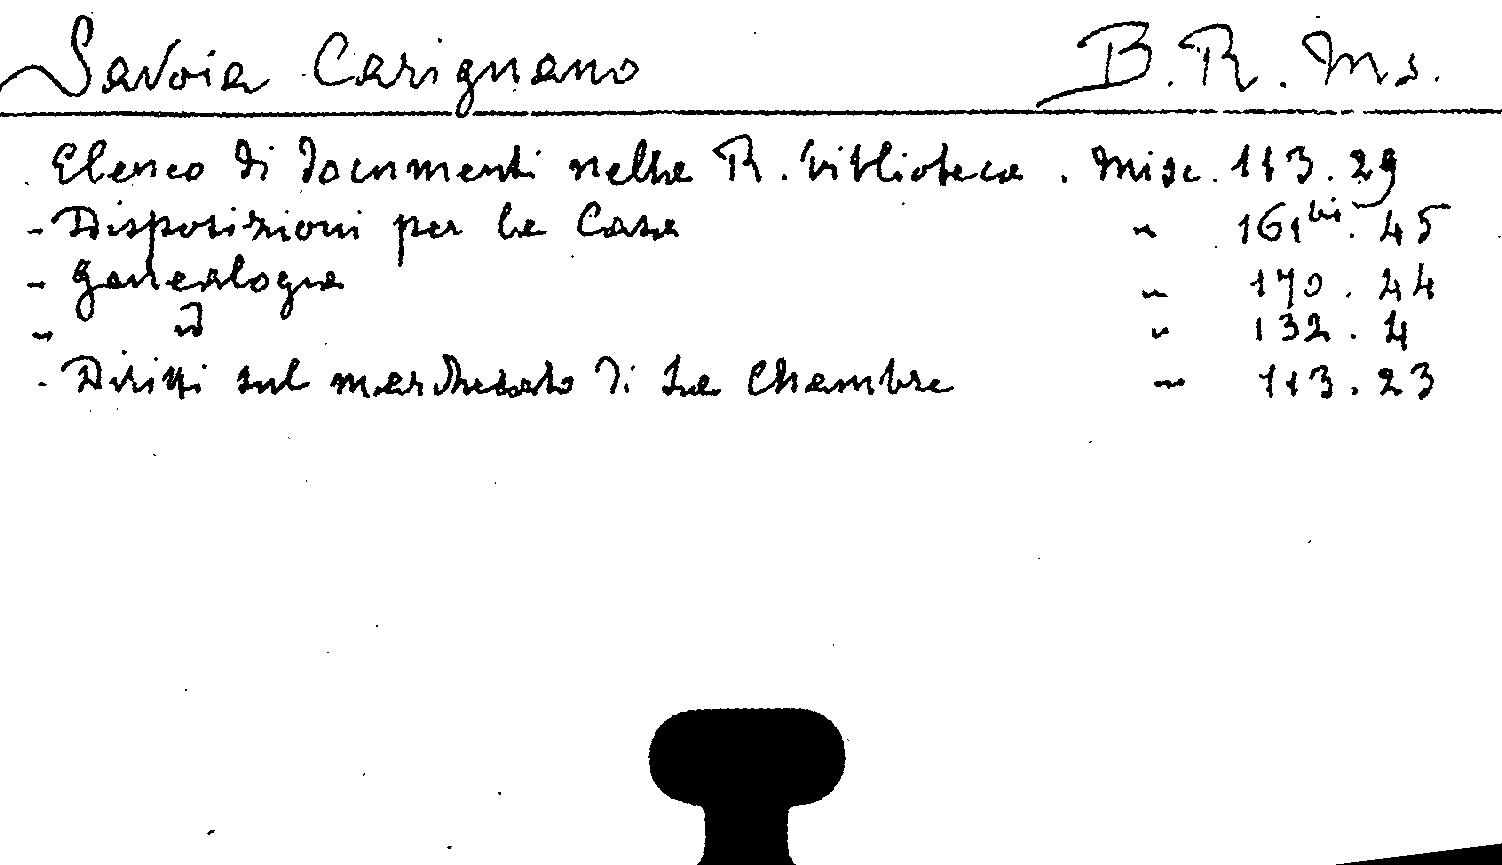 Savoia Carignano B.R. Ms.
Elenco di documenti nella R. biblioteca. Misc. 113.29
- Disposizioni per la Casa " 161bis. 45
- genealogia " 170. 44
" id " 132. 4
- Diritti sul marchesato di La Chambre " 113. 23